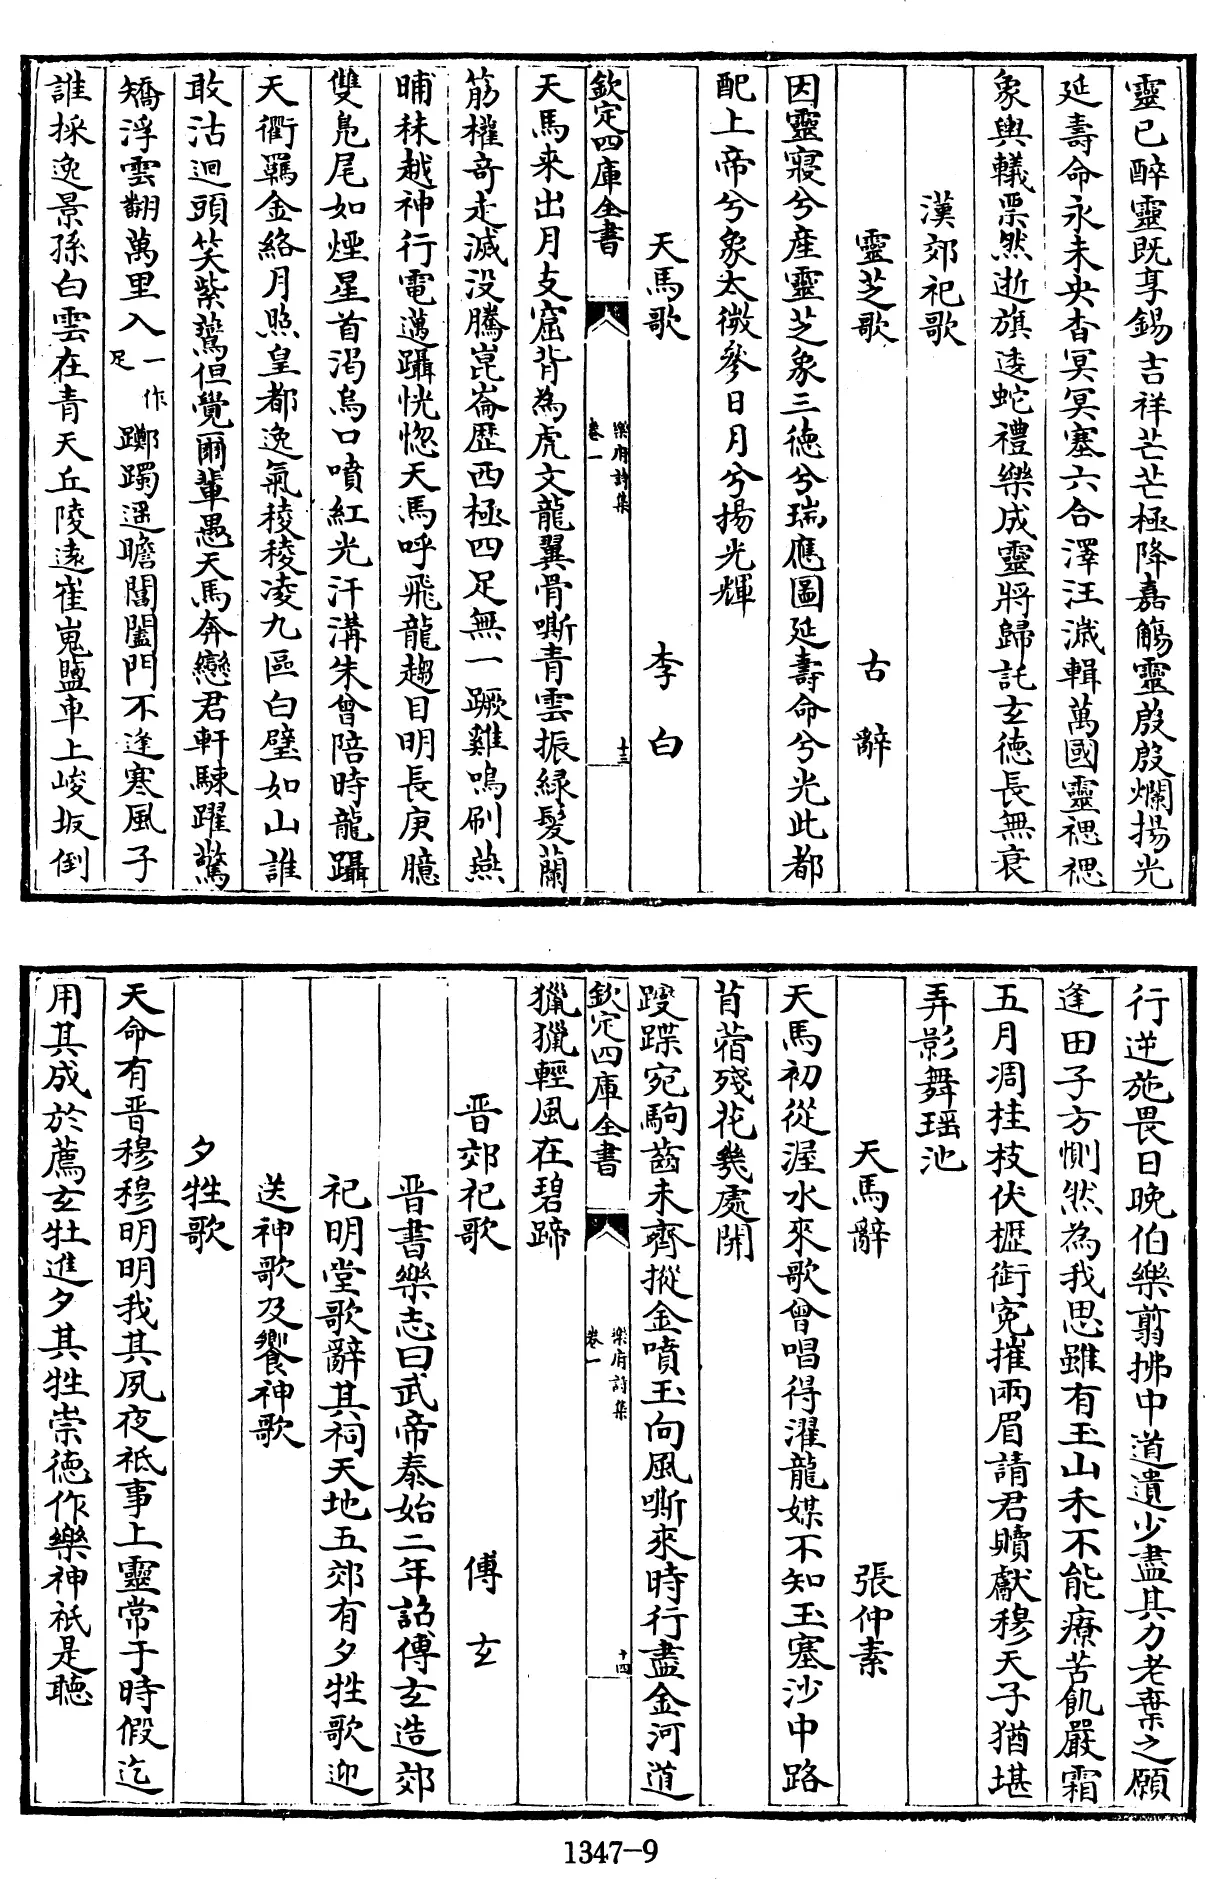 靈已醉靈既享錫吉祥芒芒極降嘉觴靈殷殷爛揚光
延壽命永未央杳冥冥塞六合澤汪濊輯萬國靈禗禗
象輿轙票然逝旗逶蛇禮樂成靈將歸託玄德長無衰
漢郊祀歌
靈芝歌 古辭
因靈寢兮産靈芝象三徳兮瑞應圖延壽命兮光此都
配上帝兮象太微參日月兮揚光輝
天馬歌 李白
欽定四庫全書 樂府詩集 卷一 十三
天馬来出月支窟背為虎文龍翼骨嘶青雲振緑髮蘭
筋權竒走滅没騰崑崙歴西極四足無一蹶雞鳴刷燕
晡秣越神行電邁躡恍惚天馬呼飛龍趨目明長庚臆
雙鳬尾如煙星首渇烏口噴紅光汗溝朱曾陪時龍躡
天衢羈金絡月照皇都逸氣稜稜凌九區白璧如山誰
敢沽迴頭笑紫鷰但覺爾輩愚天馬奔戀君軒駷躍驚
矯浮雲翻萬里入一作足躑躅遥瞻閶闔門不逢寒風子
誰採逸景孫白雲在青天丘陵逺崔嵬鹽車上峻坂倒
行逆施畏日晚伯樂翦拂中道遺少盡其力老棄之願
逢田子方惻然為我思雖有玉山禾不能療苦飢嚴霜
五月凋桂枝伏櫪銜寃摧兩眉請君贖獻穆天子猶堪
弄影舞瑶池
天馬辭 張仲素
天馬初從渥水來歌曾唱得濯龍媒不知玉塞沙中路
苜蓿殘花幾處開
躞蹀宛駒齒未齊摐金噴玉向風嘶來時行盡金河道
欽定四庫全書 樂府詩集 卷一 十四
獵獵輕風在碧蹄
晋郊祀歌 傅玄
晋書樂志曰武帝泰始二年詔傅玄造郊
祀明堂歌辭其祠天地五郊有夕牲歌迎
送神歌及饗神歌
夕牲歌
天命有晋穆穆明明我其夙夜祗事上靈常于時假迄
用其成於薦玄牡進夕其牲崇徳作樂神祇是聴
1347-9